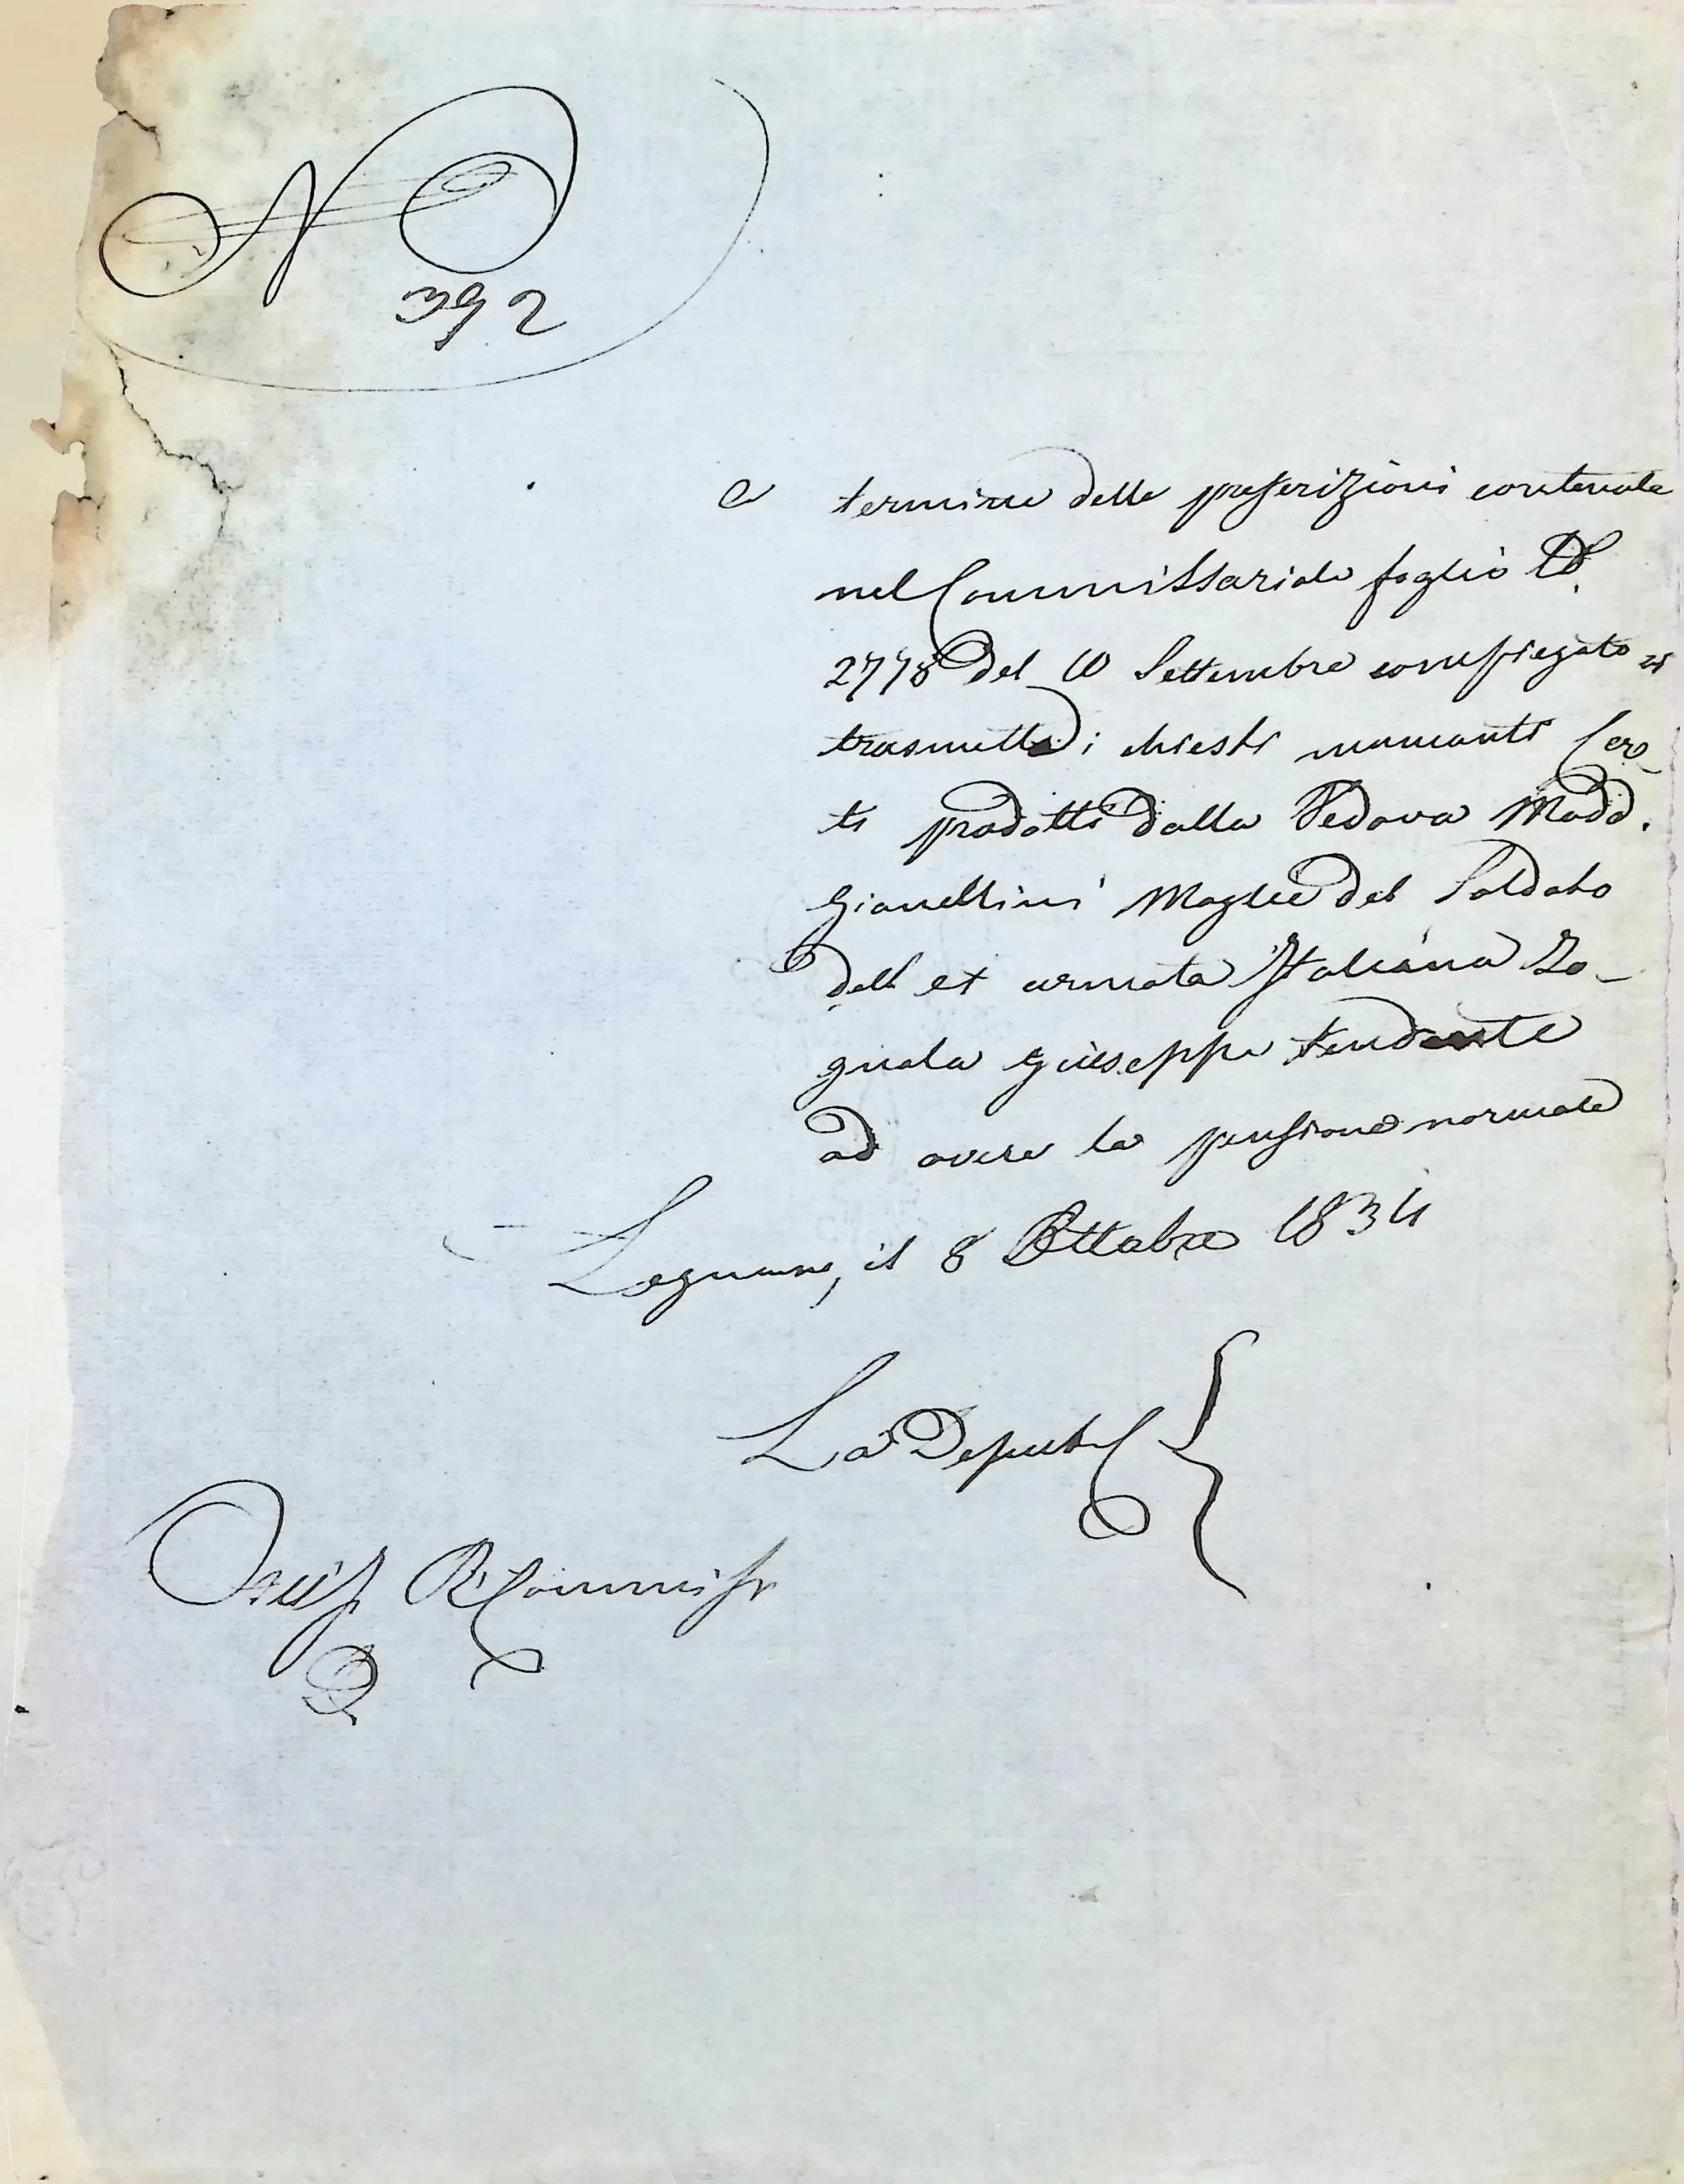 N
392
a termine delle prescrizioni contenute
nel Commissariale foglio
2778 del 10 Settembre compiegato si
trasmette i chiesti mancanti Cer-
ti prodotti dalla Vedova Madd.
Gianellini Moglie del Soldato
dell ex armata Italiana Zo-
gnala Giuseppe tendente
ad avere la pensione normale
il 8 Ottobre 1834
La Deput
R Commiss